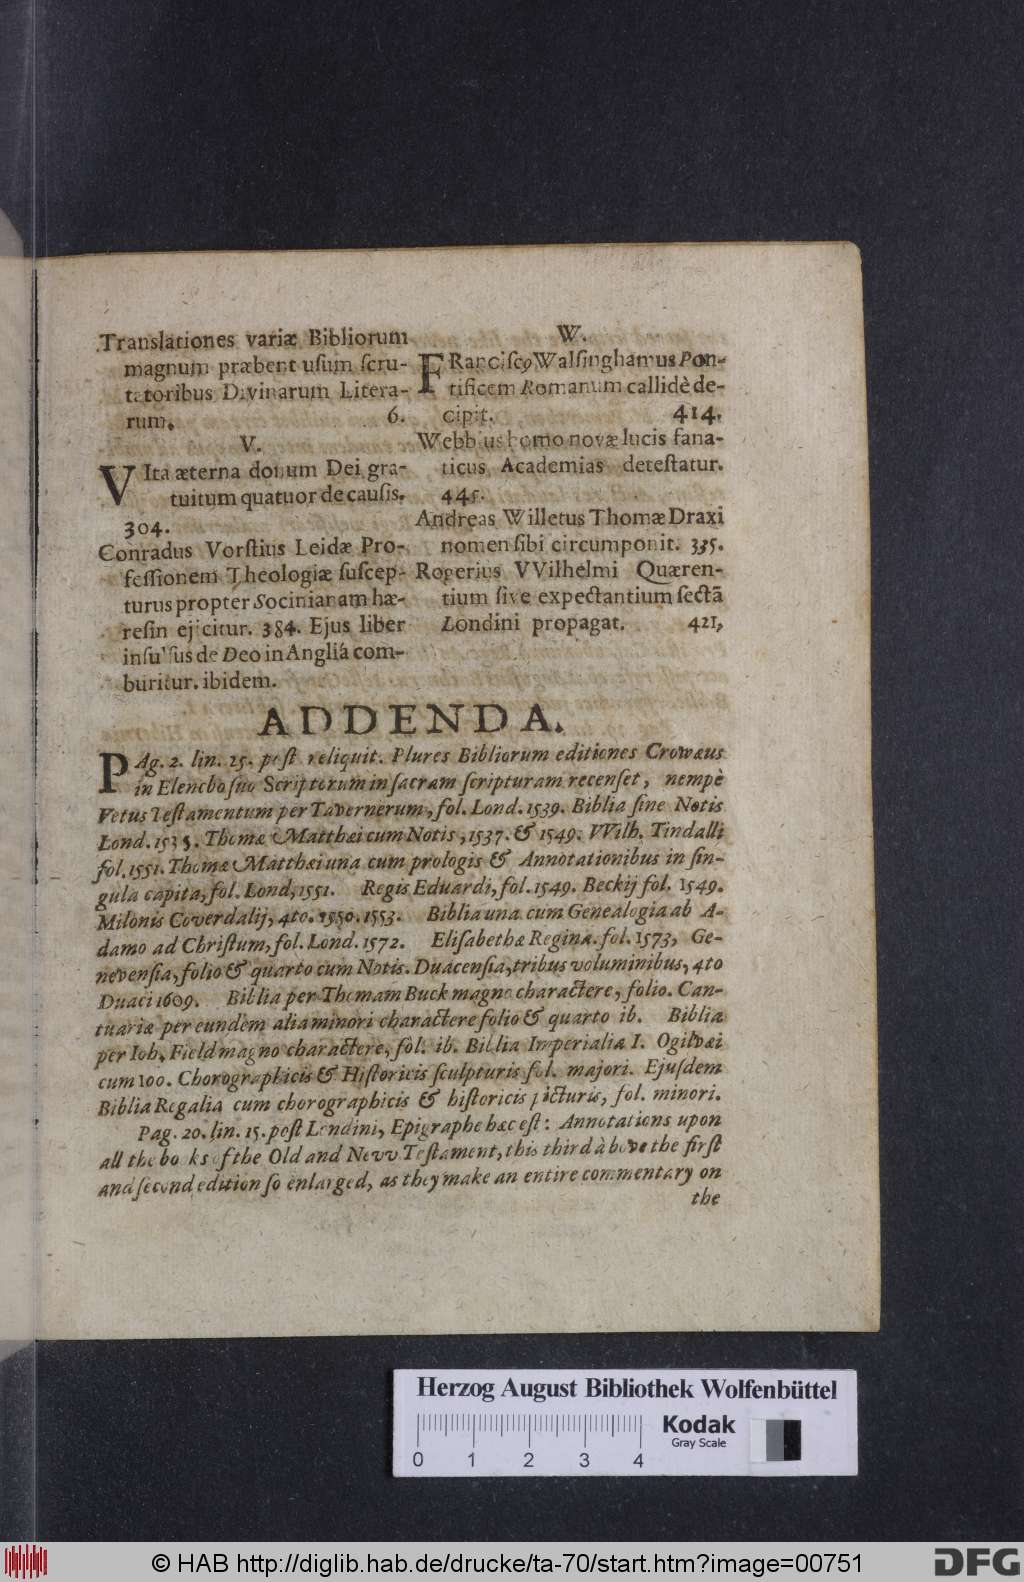 Translationes variæ Bibliorum
magnum præbent usum scru-
tatoribus Divinarum Litera-
rum. 6.
V.
VIta æterna donum Dei gra-
tuitum quatuor de causis.
304.
Conradus Vorstius Leidæ Pro-
fessionem Theologiæ suscep-
turus propter Socinianam hæ-
resin ejicitur. 384. Ejus liber
insulsus de Deo in Angliâ com-
buritur. ibidem.
W.
FRanciscꝰ Walsinghamus Pon-
tificem Romanum callidè de-
cipit. 414.
Webbius homo novæ lucis fana-
ticus Academias detestatur.
445.
Andreas Willetus Thomæ Draxi
nomen sibi circumponit. 335.
Rogerius VVilhelmi Quæren-
tium sive expectantium sectā
Londini propagat. 421,
ADDENDA.
PAg. 2. lin. 25. post reliquit. Plures Bibliorum editiones Crowæus
in Elencho suo Scriptorum in sacram scripturam recenset, nempè
Vetus Testamentum per Tavernerum, fol. Lond. 1539. Biblia sine Notis
Lond. 1535. Thomæ Matthæi cum Notis, 1537. & 1549. VVilh. Tindalli
fol. 1551. Thomæ Matthæi una cum prologis & Annotationibus in sin-
gula capita, fol. Lond, 1551. Regis Eduardi, fol. 1549. Beckij fol. 1549.
Milonis Coverdalij, 4to. 1550. 1553. Biblia una cum Genealogia ab A-
damo ad Christum, fol. Lond. 1572. Elisabethæ Reginæ. fol. 1573, Ge-
nevensia, folio & quarto cum Notis. Duacensia, tribus voluminibus, 4to
Duaci 1609. Biblia per Thomam Buck magno charactere, folio. Can-
tuariæ per eundem alia minori charactere folio & quarto ib. Biblia
per Ioh, Field magno charactere, fol. ib. Biblia Imperialia I. Ogilvæi
cum 100. Chorographicis & Historicis sculpturis fol. majori. Ejusdem
Biblia Regalia cum chorographicis & historicis picturis, fol. minori.
Pag. 20. lin. 15. post Londini, Epigraphe hæc est: Annotations upon
all the books of the Old and Nevv Testament, this third à bove the first
and second edition so enlarged, as they make an entire commentary on
the
Herzog August Bibliothek Wolfenbüttel
Kodak
Gray Scale
0 1 2 3 4
© HAB http://diglib.hab.de/drucke/ta-70/start.htm?image=00751
DFG